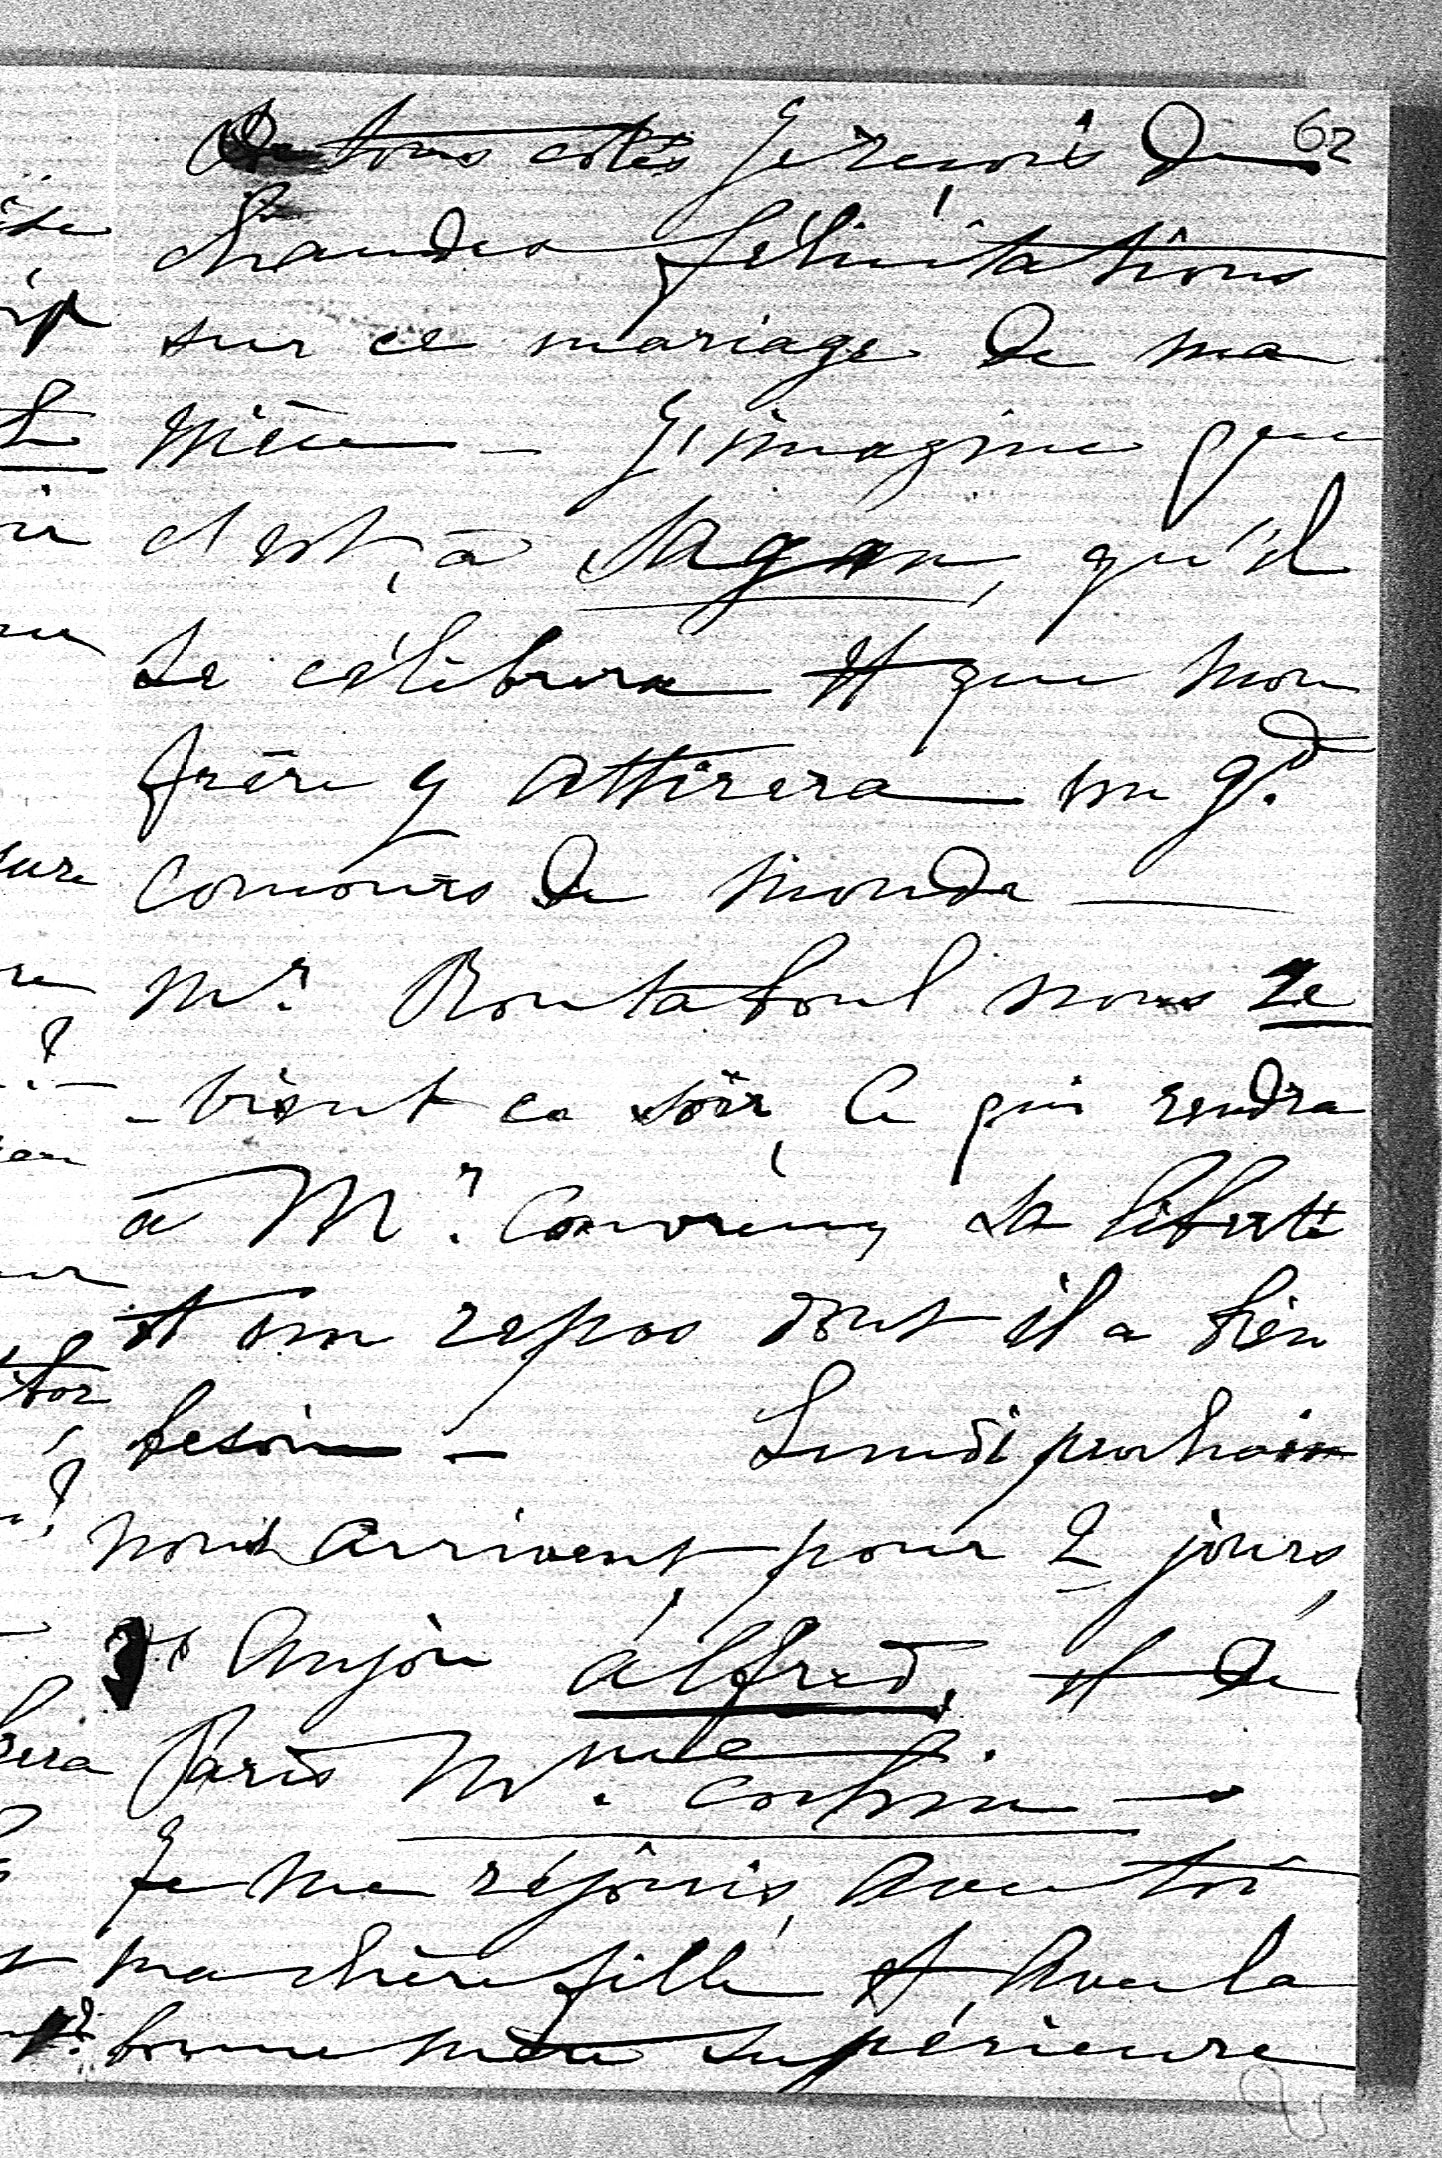 62
De tous côtés je reçois de
chaudes félicitations
sur ce mariage de ma
nièce - J'imagine que
c'est, à Sagan, qu'il
se célèbrera et que mon
frère y attirera un gd.
concours de monde —
Mr. Boutaboul nous re
-vient ce soir, ce qui rendra
à Mr. sa liberté
et un repos dont il a bien
besoin - Lundi prochain
nous arrivent, pour 2 jours,
d'Anjou Alfred, et de
Paris Mme. Cochin —
Je me réjouis, avec toi
ma chère fille, et avec la
bonne mère supérieure